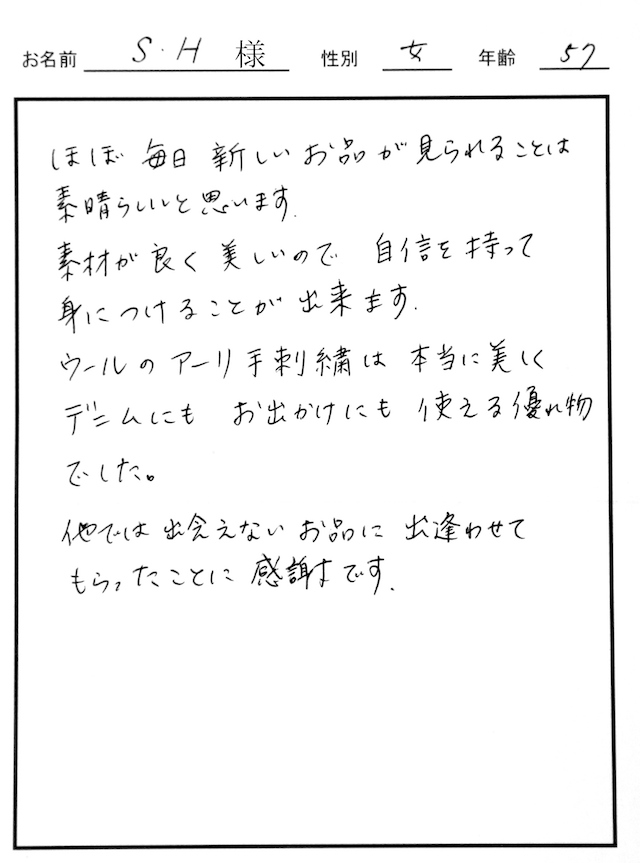 お名前 S・H 様 性別 女 年齢 57
ほぼ 毎日 新しい お品が 見られることは
素晴らしいと思います.
素材が良く 美しいので 自信を持って
身につけることが 出来ます.
ウールの アーリ手刺繍は 本当に美しく
デニムにも お出かけにも 使える優れ物
でした。
他では 出会えない お品に 出逢わせて
もらったことに 感謝です.